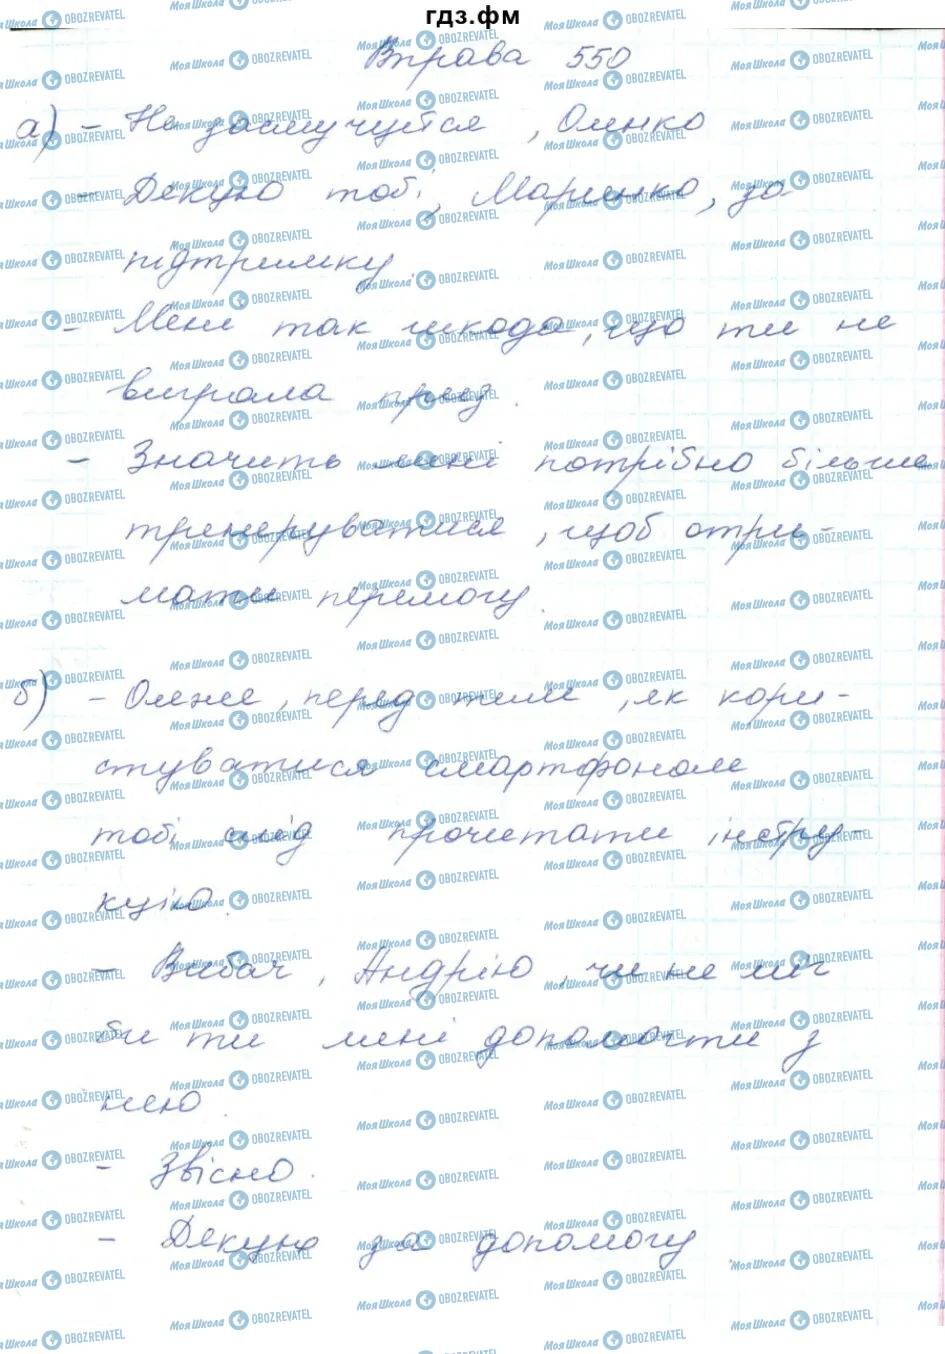 гдз.фм
Вправа 550
а) - Не засмучуйся, Оленко
- Дякую тобі, Марійко, за
підтримку.
- Мені так шкода, що ти не
виграла приз.
- Значить мені потрібно більше
тренеруватися, щоб отри-
мати перемогу.
б) - Олеже, перед тим, як кори-
стуватися смартфоном
тобі слід прочитати інстру-
кцію.
- Вибач, Андрію, чи не міг
би ти мені допомогти з
нею.
- Звісно.
- Дякую за допомогу.
МояШкола OBOZREVATEL